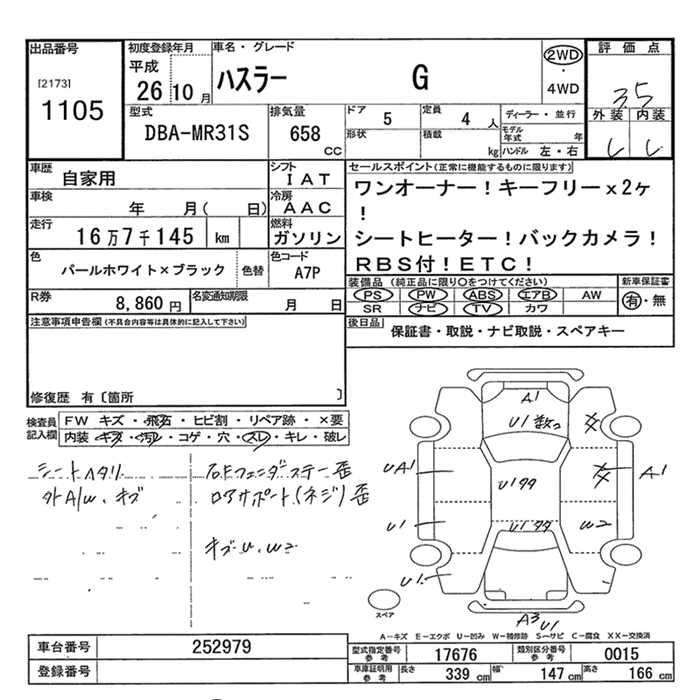 出品番号
[2173]
1105
初度登録年月
平成
26 10月
車名・グレード
ハスラー G
2WD
・
4WD
評価点
3.5
外装 内装
型式
DBA-MR31S
排気量
658
CC
ドア 5
定員 4 人
形状
積載 kg
ディーラー・並行
モデル年式 年
ハンドル 左・右
車歴
自家用
シフト
IAT
車検
年 月( 日)
冷房
AAC
走行
16万7千145 km
燃料
ガソリン
色
パールホワイト×ブラック
色替
色コード
A7P
R券
8,860 円
名変通知期限
月 日
セールスポイント(正常に機能するものに限ります)
ワンオーナー!キーフリーx2ヶ
!
シートヒーター!バックカメラ!
RBS付!ETC!
装備品(純正品に限り○をつけてください)
PS PW ABS エアB AW
SR ナビ TV カワ
新車保証書
有・無
後日品
保証書・取説・ナビ取説・スペアキー
注意事項申告欄(不具合内容等は具体的に記入して下さい)
修復歴 有〔箇所 〕
検査員
記入欄
FW キズ・飛石・ヒビ割・リペア跡・×要
内装・キズ・汚レ・コゲ・穴・スレ・キレ・破レ
シートヘタリ
外A/W.キズ
右Fフェンダステー歪
ロアサポート(ネジ)歪
キズ・U.W2
A1
U1数コ
UA1
U1
U1
A1
W2
A3
U1
スペア
A-キズ E-エクボ U-凹み W-補修跡 S-サビ C-腐食 XX-交換済
車台番号
252979
登録番号
型式指定番号
参考
17676
類別区分番号
参考
0015
車庫証明用
参考
長さ 339 cm
幅 147 cm
高さ 166 cm